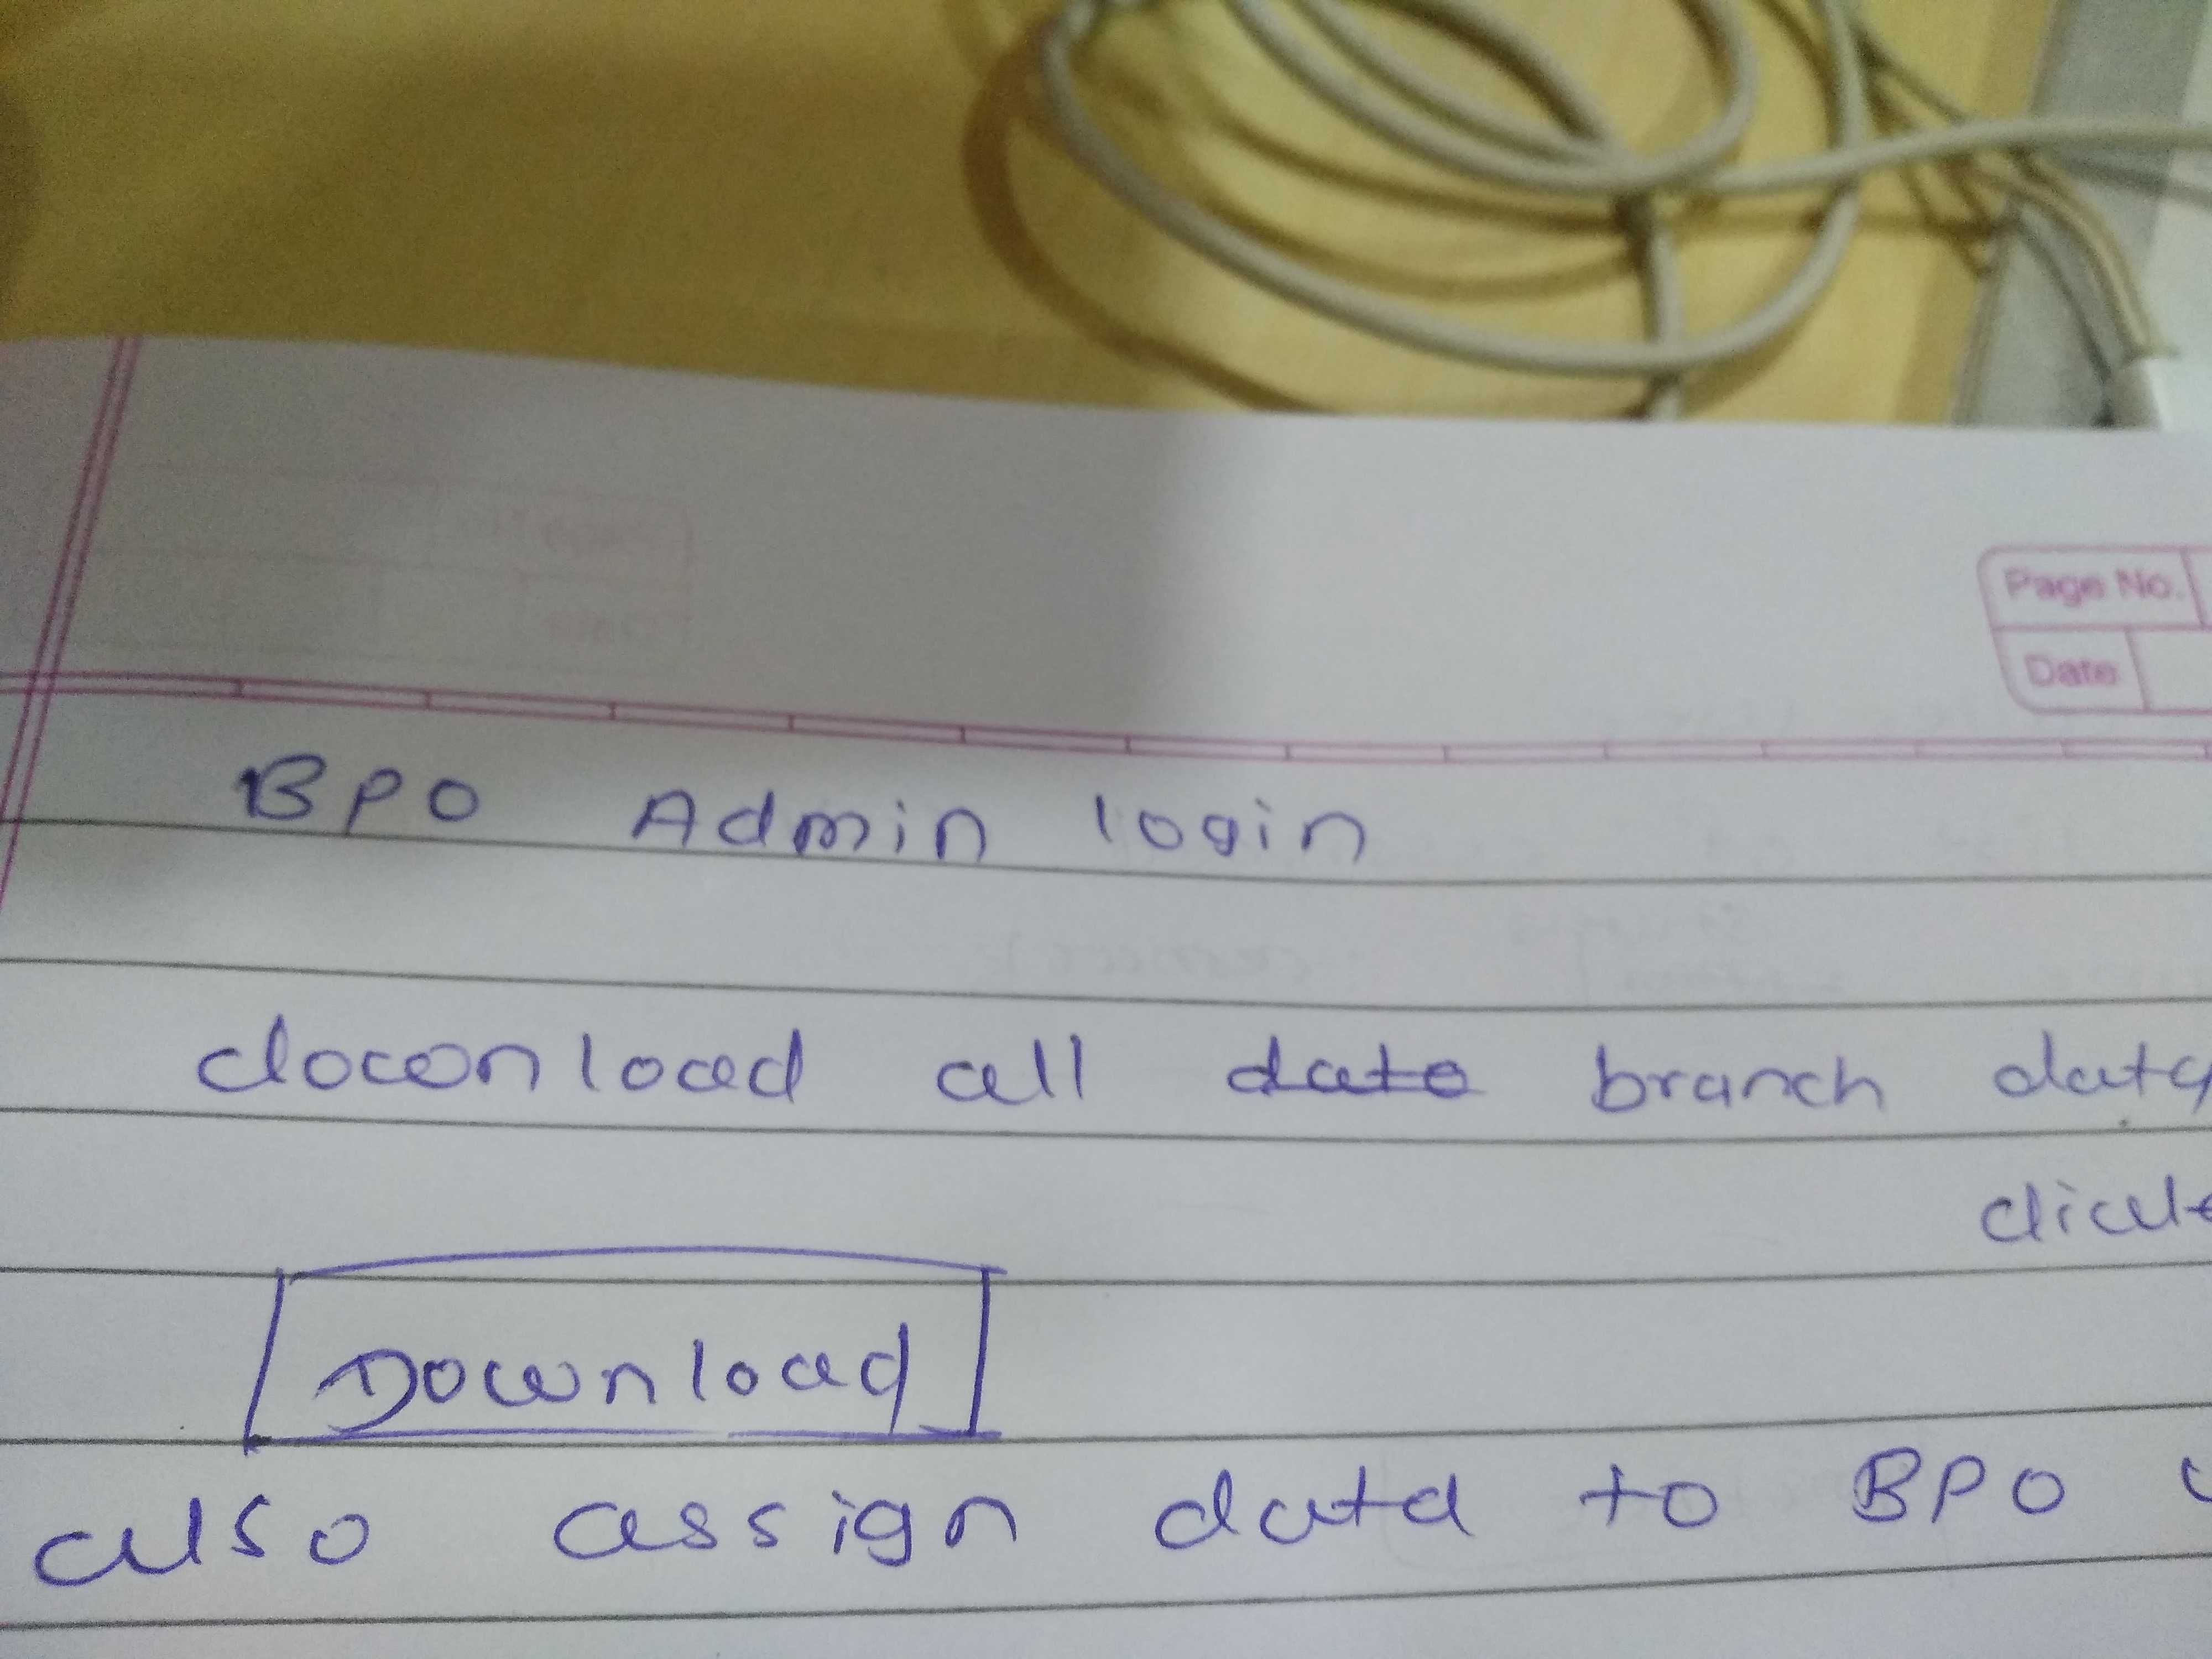 Page No.
Date
BPO Admin login
download all date branch data
Download
also assign data to BPO